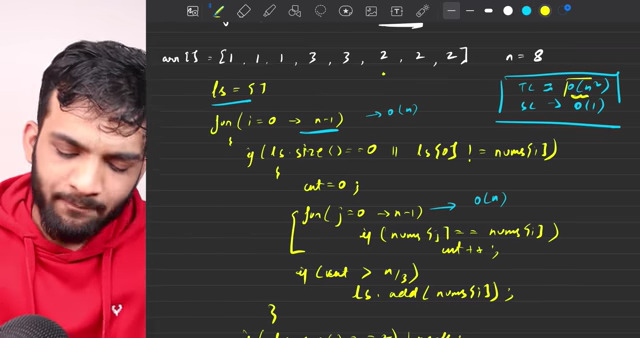 arr[] = {1, 1, 1, 3, 3, 2, 2, 2} n = 8
TC = O(n²)
SC → O(1)
ls = []
for(i=0 → n-1) → O(n)
{
if(ls.size()==0 || ls[0] != nums[i])
{
cnt=0;
for(j=0 → n-1) → O(n)
if(nums[j] == nums[i])
cnt++;
if(cnt > n/3)
ls.add(nums[i]);
}